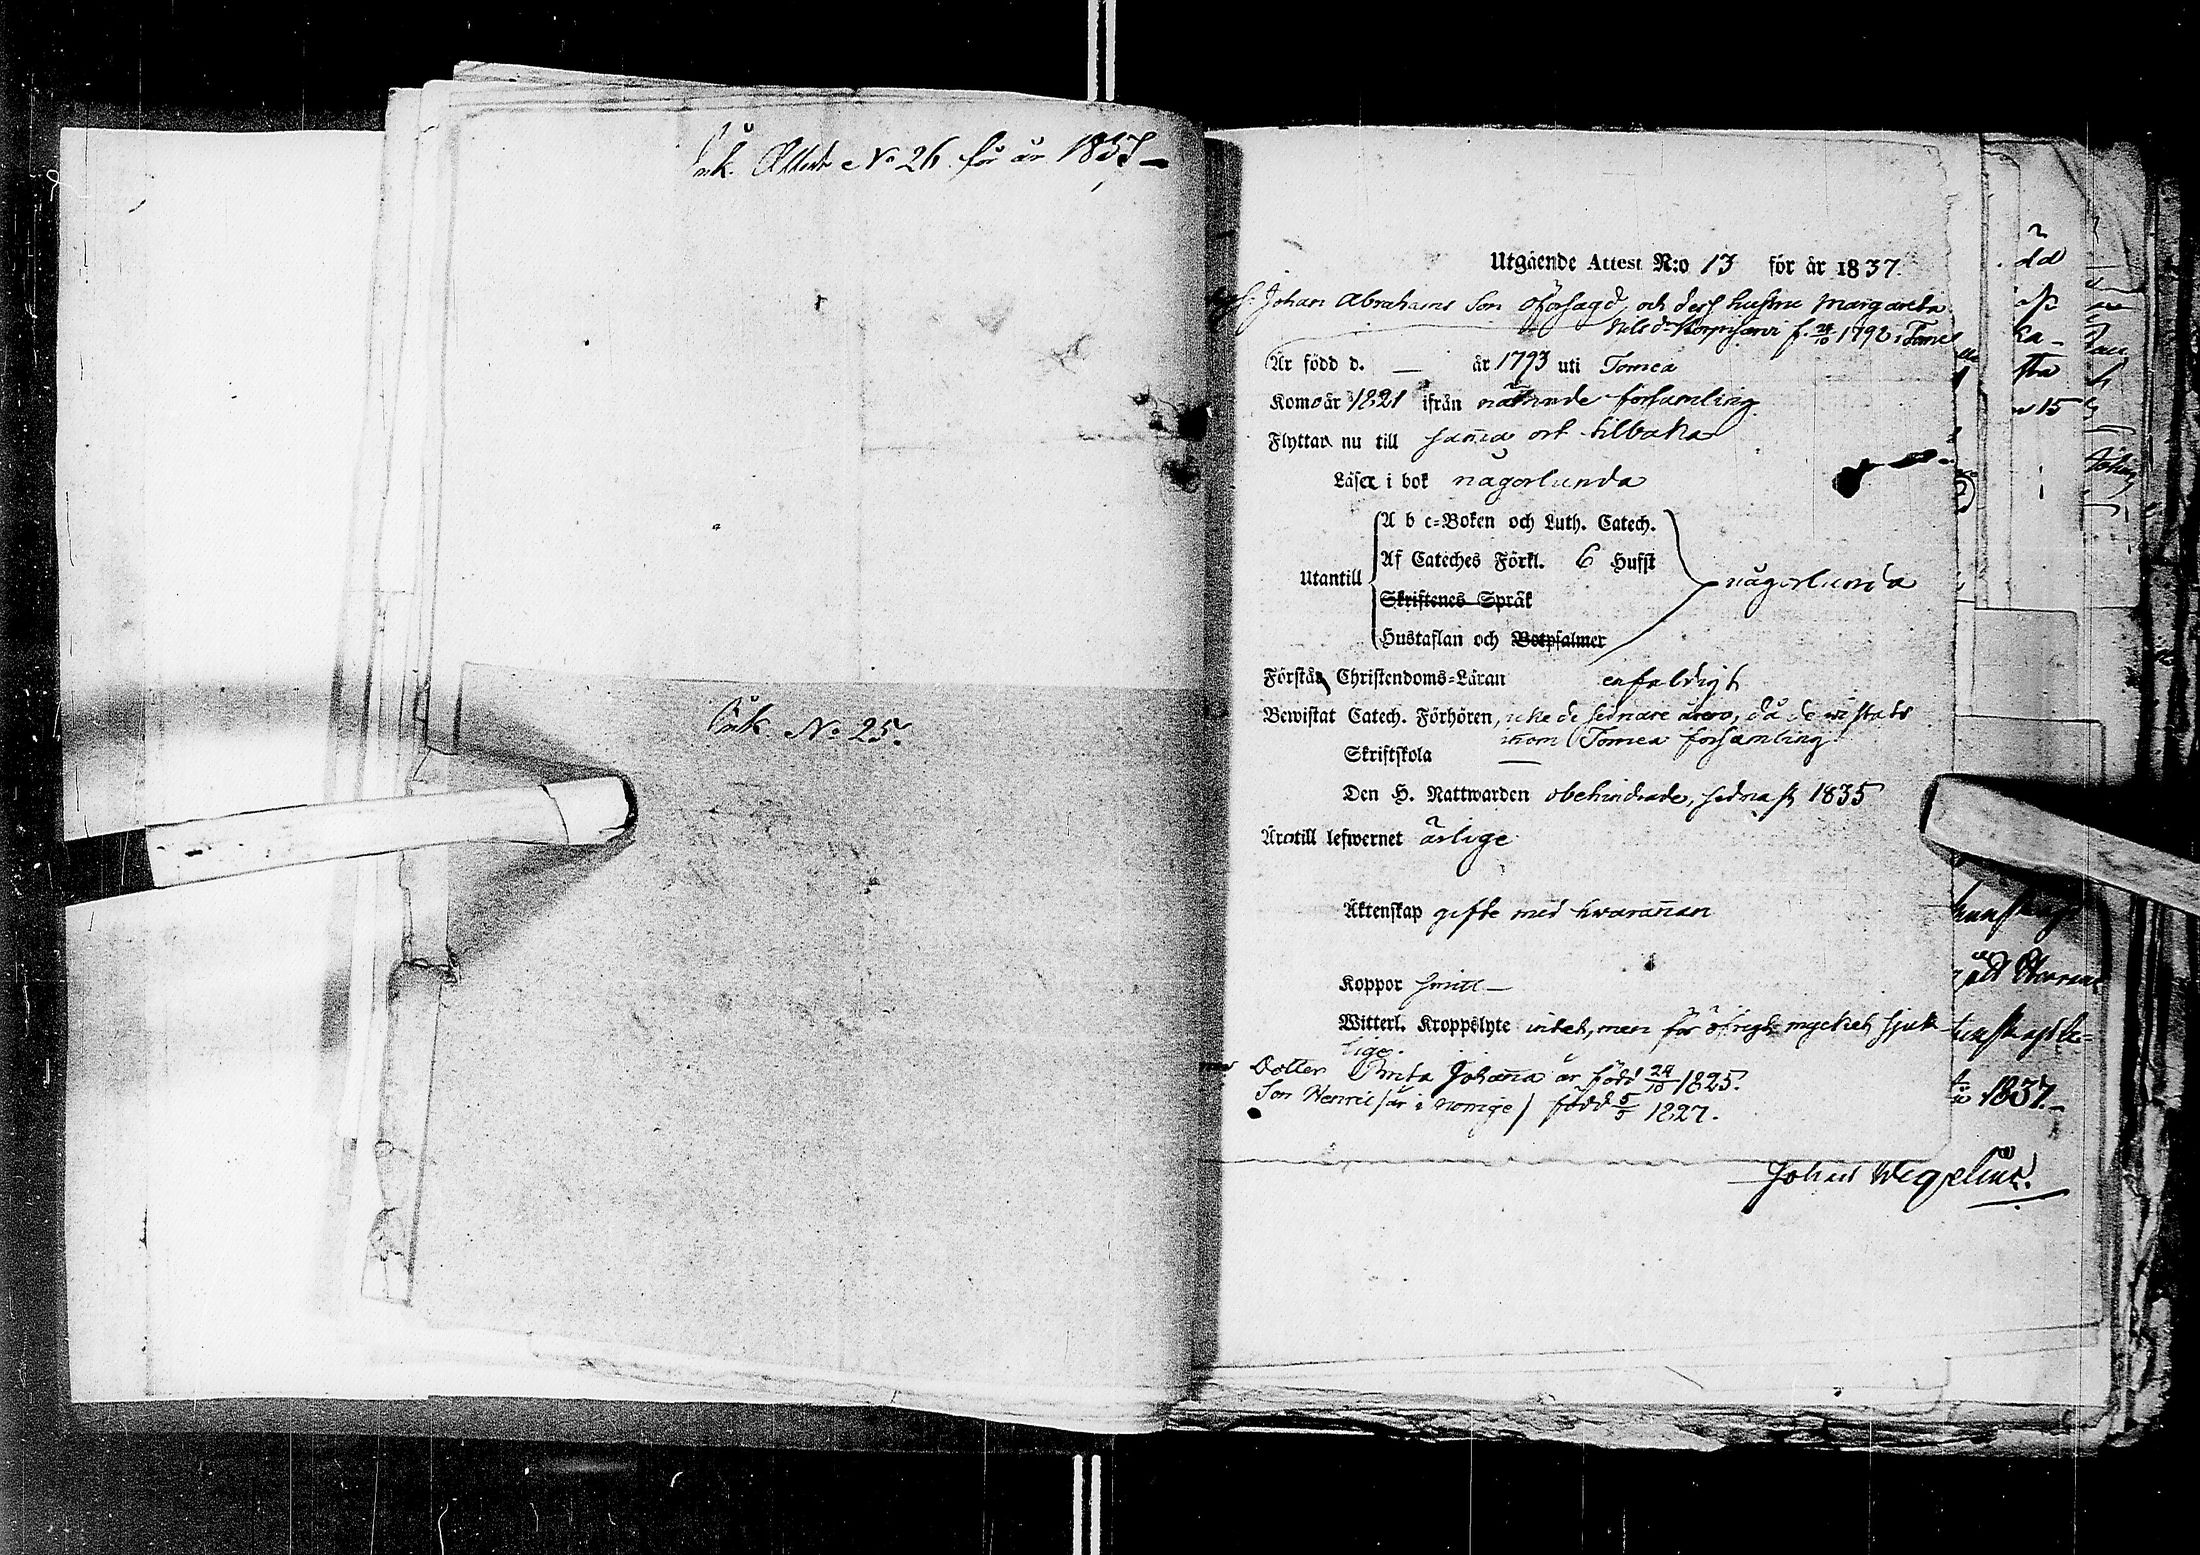 Ink. Attest No 26 för år 1837
Ink. No 25.
Utgående Attest N:o 13 för år 1837.
Johan Abrahams Son Oförsagd, och dess hustru Margareta
Nils dr f. 24/10 1792 i Torne
Är född d. — år 1793 uti Tornea
Kommo år 1821 ifrån nämnde församling
Flyttar nu till samma ort tilbaka
Läser i bok någorlunda
A b c-Boken och Luth. Catech.
Af Cateches Förkl. 6 Hufst
Utantill någorlunda
Skriftenes Språk
Hustaflan och Botpsalmer
Förstår Christendoms-Läran enfaldigt
Bewistat Catech. Förhören, icke de sednare åren, då de wistats
inom Tornea församling
Skriftskola —
Den H. Nattwarden obehindrade, sednast 1835
Äro till lefwernet ärlige
Äktenskap gifte med hwarannan
Koppor haft —
Witterl. Kroppslyte intet, men för öfrigt mycket sjuk-
lige.
Dotter Anita Johanna är född 24/10 1825.
Son Henric (är i Norrige) född 5/5 1827.
Johan Wegelius.
dd
ka-
sta
15
1837.